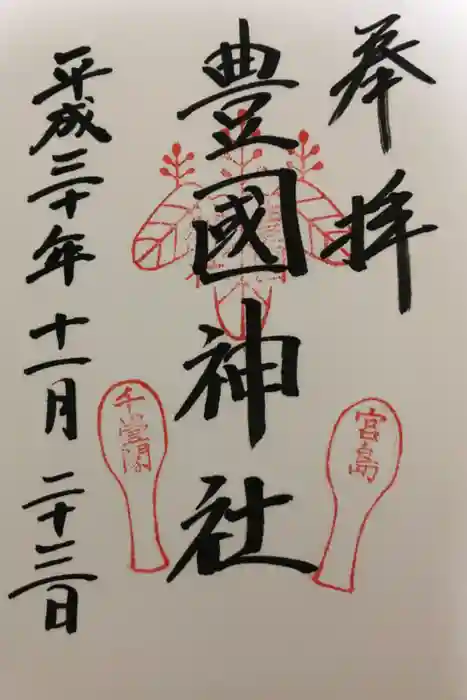 奉拝
豊國神社
平成三十年十一月二十三日
宮島
千畳閣